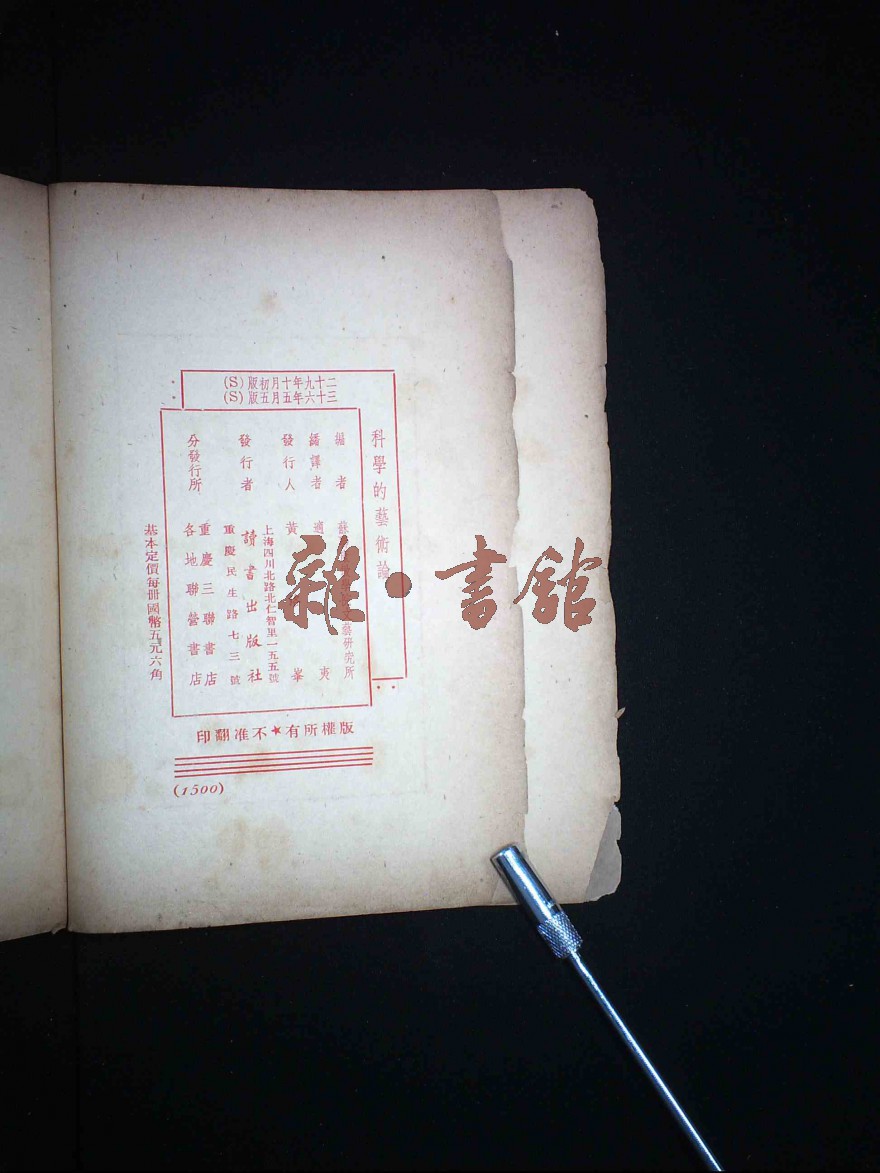 二十九年十月初版(S)
三十六年五月五版(S)
科學的藝術論
編者 蘇 藝研究所
編譯者 適夷
發行人 黃 峯
上海四川北路北仁智里一五五號
發行者 讀書出版社
重慶民生路七三號
分發行所 重慶三聯書店
各地聯營書店
基本定價每冊國幣五元六角
版權所有★不准翻印
(1500)
雜·書館